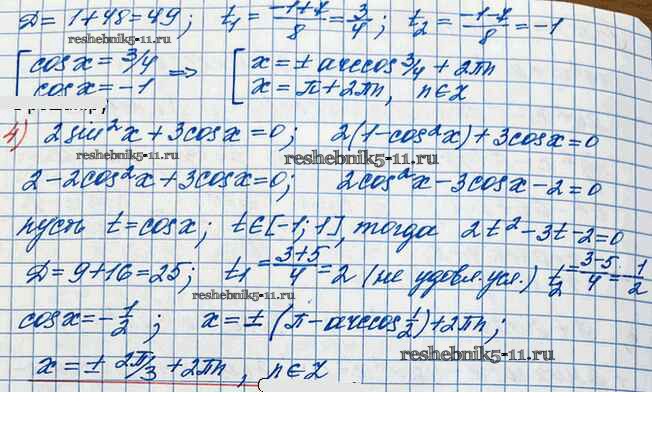 D = 1+48 = 49; t₁ = (-1+7)/8 = 3/4; t₂ = (-1-7)/8 = -1
[cosx = 3/4 => [x = ± arccos 3/4 + 2πn
cosx = -1 x = π + 2πn, n∈Z
reshebnik5-11.ru
4) 2sin²x + 3cosx = 0; 2(1-cos²x) + 3cosx = 0
reshebnik5-11.ru reshebnik5-11.ru
2 - 2cos²x + 3cosx = 0; 2cos²x - 3cosx - 2 = 0
пусть t = cosx; t∈[-1; 1], тогда 2t² - 3t - 2 = 0
reshebnik5-11.ru
D = 9+16 = 25; t₁ = (3+5)/4 = 2 (не удовл. усл.) t₂ = (3-5)/4 = -1/2
reshebnik5-11.ru
cosx = -1/2; x = ± (π - arccos 1/2) + 2πn;
reshebnik5-11.ru
x = ± 2π/3 + 2πn, n∈Z